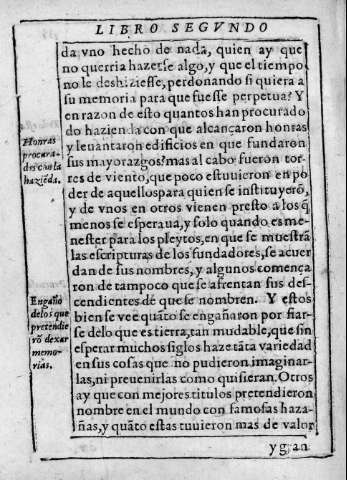 LIBRO SEGVNDO
da vno hecho de nada, quien ay que
no querria hazerse algo, y que el tiempo
no le deshiziesse, perdonando si quiera a
su memoria para que fuesse perpetua? Y
en razon de esto quantos han procurado
do hazienda con que alcançaron honras
y leuantaron edificios en que fundaron
sus mayorazgos? mas al cabo fueron tor-
res de viento, que poco estuuieron en po
der de aquellos para quien se instituyerõ,
y de vnos en otros vienen presto a los q̃
menos se esperaua, y solo quando es me-
nester para los pleytos, en que se muestrã
las escripturas de los fundadores, se acuer
dan de sus nombres, y algunos comença
ron de tampoco que se afrentan sus des-
cendientes de que se nombren. Y estos
bien se vee quãto se engañaron por fiar-
se de lo que es tierra, tan mudable, que sin
esperar muchos siglos haze tãta variedad
en sus cosas que no pudieron imaginar-
las, ni preuenirlas como quisieran. Otros
ay que con mejores titulos pretendieron
nombre en el mundo con famosas haza-
ñas, y quãto estas tuuieron mas de valor
y gran
Honras
procura-
das con la
haziẽda.
Engaño
de los que
pretendie
rõ dexar
memo-
rias.